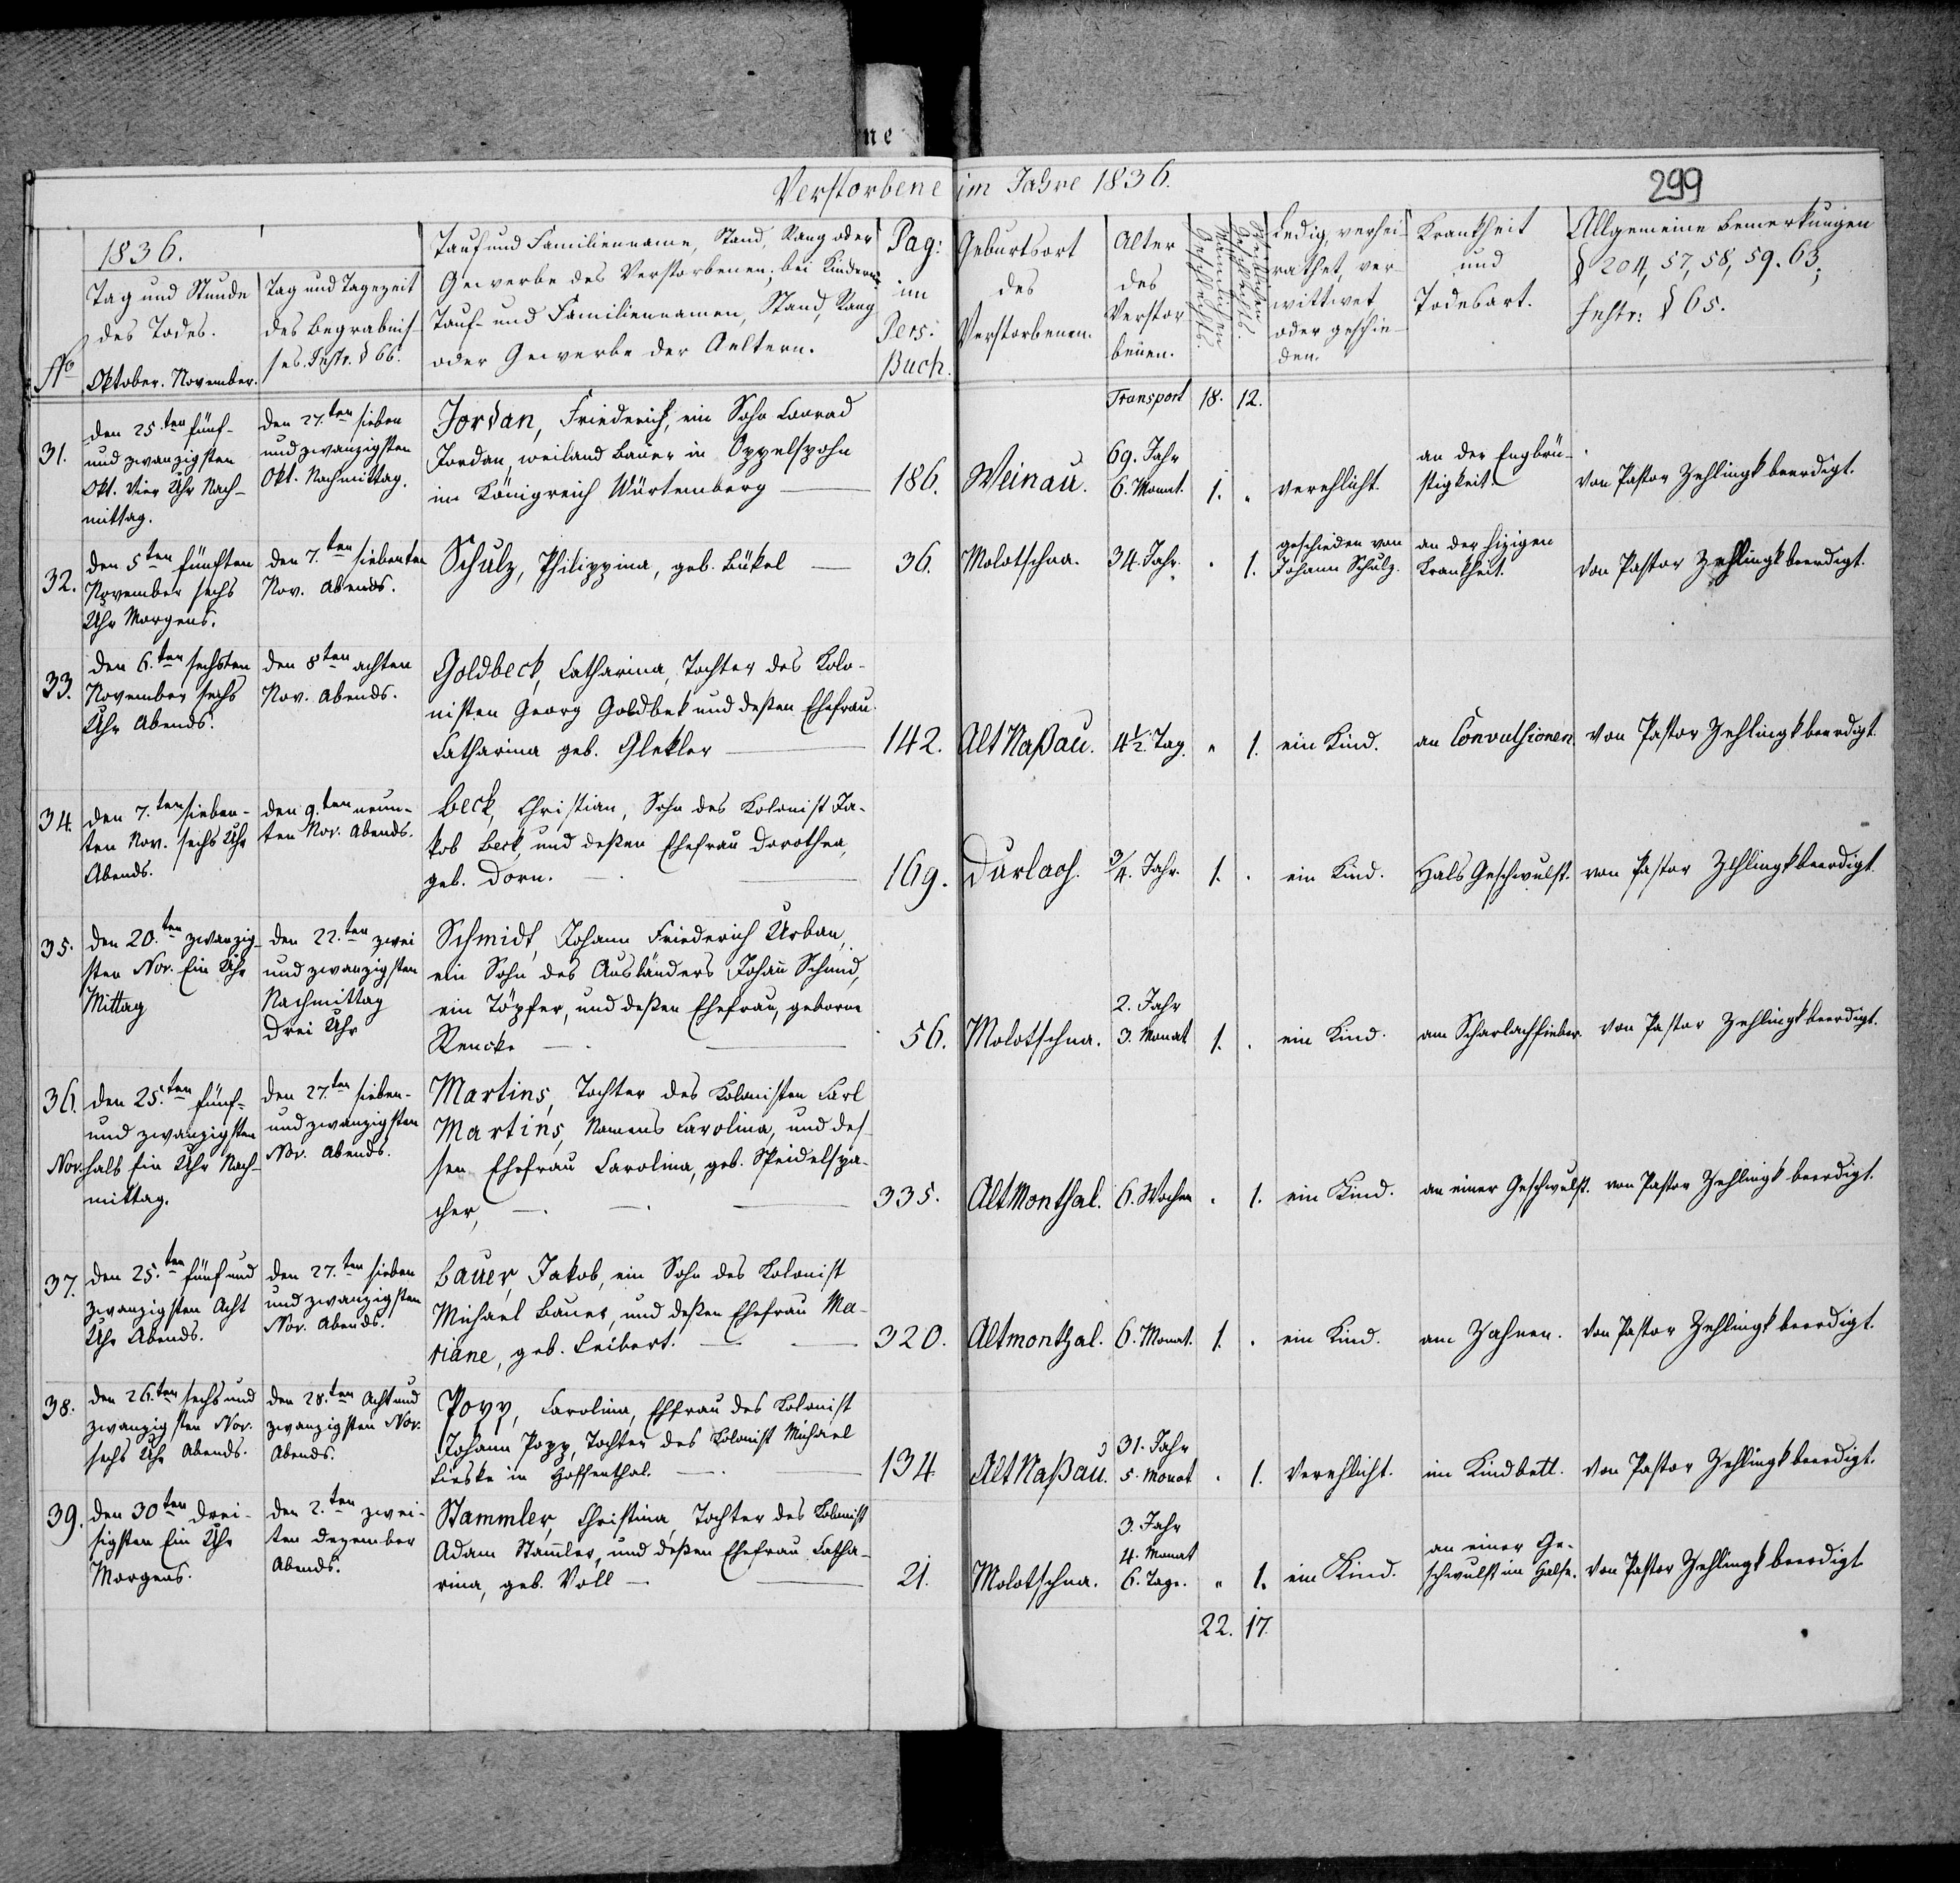 ne
Verstorbene im Jahre 1836.
299
1836.
No
Tag und Stunde
des Todes.
Oktober. November.
Tag und Tagezeit
des Begräbnis-
ses. Instr. § 66.
Tauf und Familienname, Stand, Rang oder
Gewerbe des Verstorbenen; bei Kindern
Tauf- und Familiennamen, Stand, Rang
oder Gewerbe der Aeltern.
Pag:
im
Pers:
Buch.
Geburtsort
des
Verstorbenen.
Alter
des
Verstor
benen.
Männlichen
Geschlechts.
Weiblichen
Geschlechts.
Ledig, verhei-
rathet, ver-
wittwet
oder geschie-
den.
Krankheit
und
Todesart.
Allgemeine Bemerkungen
§ 204, 57, 58, 59. 63;
Instr: § 65.
Transport 18. 12.
31.
den 25.ten fünf-
und zwanzigsten
Okt. Vier Uhr Nach-
mittag.
den 27.ten sieben
und zwanzigsten
Okt. Nachmittag.
Jordan, Friederich, ein Sohn Conrad
Jordan, weiland Bauer in Oppelspohn
im Königreich Würtemberg
186.
Weinau.
69. Jahr
6. Monat.
1.
verehlicht.
an der Engbrü-
stigkeit.
von Pastor Zehlingk beerdigt.
32.
den 5ten fünften
November sechs
Uhr Morgens.
den 7.ten siebenten
Nov. Abends.
Schulz, Philippina, geb. Bükel
36.
Molotschna.
34. Jahr.
1.
geschieden von
Johann Schulz.
an der hizigen
Krankheit.
von Pastor Zehlingk beerdigt.
33.
den 6.ten sechsten
November sechs
Uhr Abends.
den 8ten achten
Nov. Abends.
Goldbeck, Catharina, Tochter des Kolo-
nisten Georg Goldbek und deßen Ehefrau
Catharina geb. Glekler
142.
Alt Naßau.
4 1/2. Tag.
"
1.
ein Kind.
an Convulsionen.
von Pastor Zehlingk beerdigt.
34.
den 7.ten sieben-
ten Nov. sechs Uhr
Abends.
den 9.ten neun-
ten Nov. Abends.
Beck, Christian, Sohn des Kolonist Ja-
kob Beck, und deßen Ehefrau Dorothea,
geb. Dorn.
169.
Durlach.
3/4. Jahr.
1.
ein Kind.
Hals Geschwulst.
von Pastor Zehlingk beerdigt.
35.
den 20.ten zwanzig-
sten Nov. Ein Uhr
Mittag
den 22.ten zwei
und zwanzigsten
Nachmittag
Drei Uhr
Schmidt, Johann Friederich Urban,
ein Sohn des Ausländers Johann Schmid,
ein Töpfer, und deßen Ehefrau, geborne
Rencke
56.
Molotschna.
2. Jahr
3. Monat
1.
ein Kind.
am Scharlachfieber.
von Pastor Zehlingk beerdigt.
36.
den 25.ten fünf-
und zwanzigsten
Nov. halb Ein Uhr Nach-
mittag.
den 27.ten sieben-
und zwanzigsten
Nov. Abends.
Martins, Tochter des Kolonisten Carl
Martins, Namens Carolina, und des-
sen Ehefrau Carolina, geb. Speidelspa-
cher,
335.
Alt Monthal.
6. Wochen
1.
ein Kind.
an einer Geschwulst.
von Pastor Zehlingk beerdigt.
37.
den 25.ten fünf und
zwanzigsten Acht
Uhr Abends.
den 27.ten sieben
und zwanzigsten
Nov. Abends.
Bauer, Jakob, ein Sohn des Kolonist
Michael Bauer, und deßen Ehefrau Ma-
riane, geb. Leibert.
320.
Altmonthal.
6. Monat.
1.
ein Kind.
am Zahnen.
von Pastor Zehlingk beerdigt.
38.
den 26.ten sechs und
zwanzigsten Nov.
sechs Uhr Abends.
den 28.ten Acht und
zwanzigsten Nov.
Abends.
Popp, Carolina, Ehfrau des Kolonist
Johann Popp, Tochter des Kolonist Michael
Lieske in Hoffenthal.
134
Alt Naßau.
31. Jahr
5. Monat
1.
Verehlicht.
im Kindbett.
von Pastor Zehlingk beerdigt.
39.
den 30ten drei-
sigsten Ein Uhr
Morgens.
den 2.ten zwei-
ten Dezember
Abends.
Stammler, Christina, Tochter des Kolonist
Adam Stamler, und deßen Ehefrau Catha-
rina, geb. Voll
21.
Molotschna.
3. Jahr
4. Monat
6. Tage.
"
1.
ein Kind.
an einer Ge-
schwulst im Halse.
von Pastor Zehlingk beerdigt
22. 17.